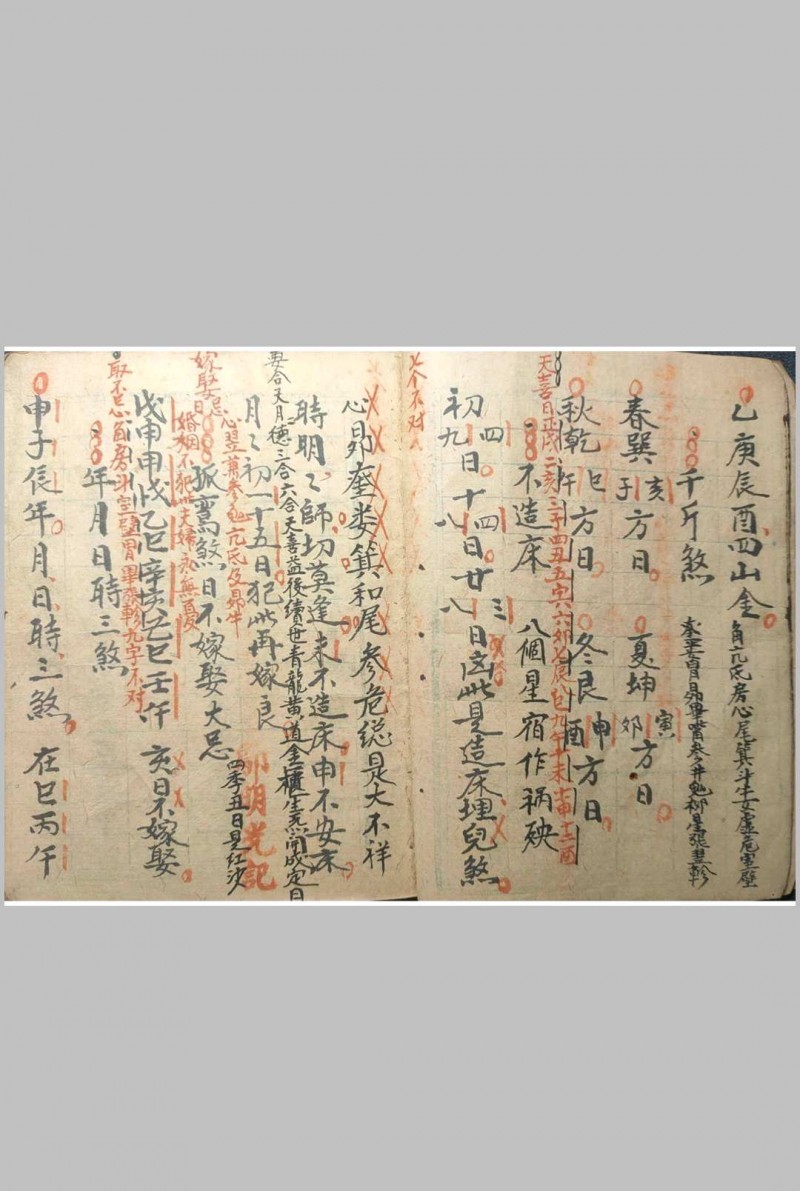 乙庚辰酉四山金
角亢氐房心尾箕斗牛女虚危室壁
奎娄胃昴畢觜参井鬼柳星張翌軫
千斤煞
春巽亥子方日 夏坤寅卯方日
秋乾巳午方日 冬艮申酉方日
天喜日正戌二亥三子四丑五寅六卯七辰八巳九午十未十一申十二酉
不造床 八個星宿作祸殃
初四九日十四八日廿三八日凶此是造床埋兒煞
个不对
心昴奎娄箕和尾参危総是大不祥
時明明師切莫逢未不造床申不安床
要合天月德三合六合天喜益後續世青龍黄道金櫃生炁開成定日
月月初一十五日犯此再嫁良
卯明光記
四季五日是红沙
心翌箕参鬼亢氐及昴牛
孤鸞煞日不嫁娶大忌
嫁娶日忌
婚姻不犯此夫婦永無憂
戊申甲戌乙巳辛亥丁巳壬午 亥日不嫁娶
取不忌角房斗室壁胃畢張軫九字不对
年月日時三煞
申子辰年月日時三煞 在巳丙午